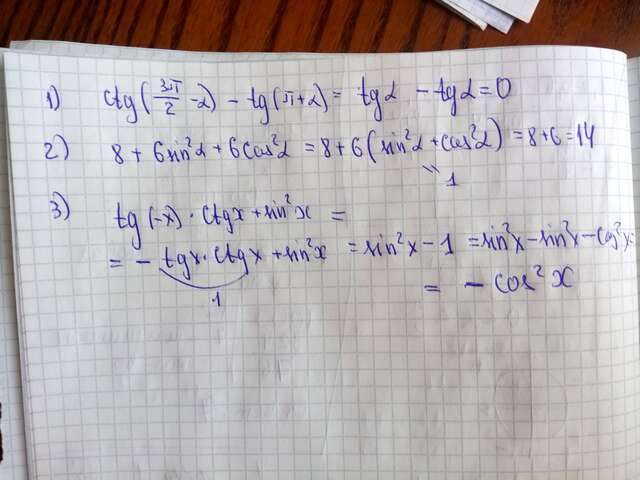 1) ctg(3π/2 - α) - tg(π + α) = tg α - tg α = 0
2) 8 + 6 sin²α + 6 cos²α = 8 + 6(sin²α + cos²α) = 8 + 6 = 14
" 1
3) tg(-x) · ctg x + sin²x =
= - tg x · ctg x + sin²x = sin²x - 1 = sin²x - sin²x - cos²x =
1
= - cos²x